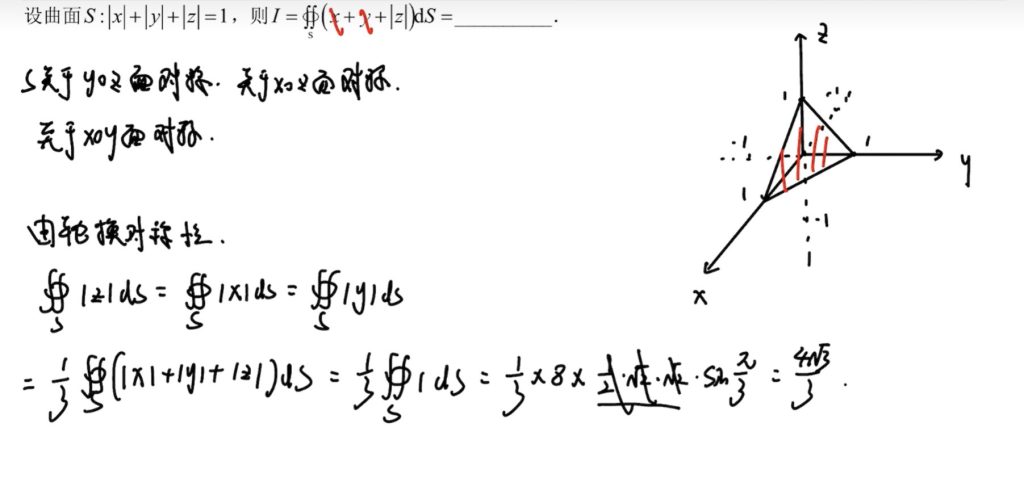 设曲面 S:|x|+|y|+|z|=1，则 I=∯_S(x+y+|z|)dS=__________.
S关于yoz面对称. 关于xoz面对称.
关于xoy面对称.
由轮换对称性.
∯_S |z|ds = ∯_S |x|ds = ∯_S |y|ds
= 1/3 ∯_S (|x|+|y|+|z|)ds = 1/3 ∯_S 1 ds = 1/3 × 8 × 1/2·√2·√2·sin π/3 = 4√3/3.
z
1
-1
-1
1
y
1
-1
x